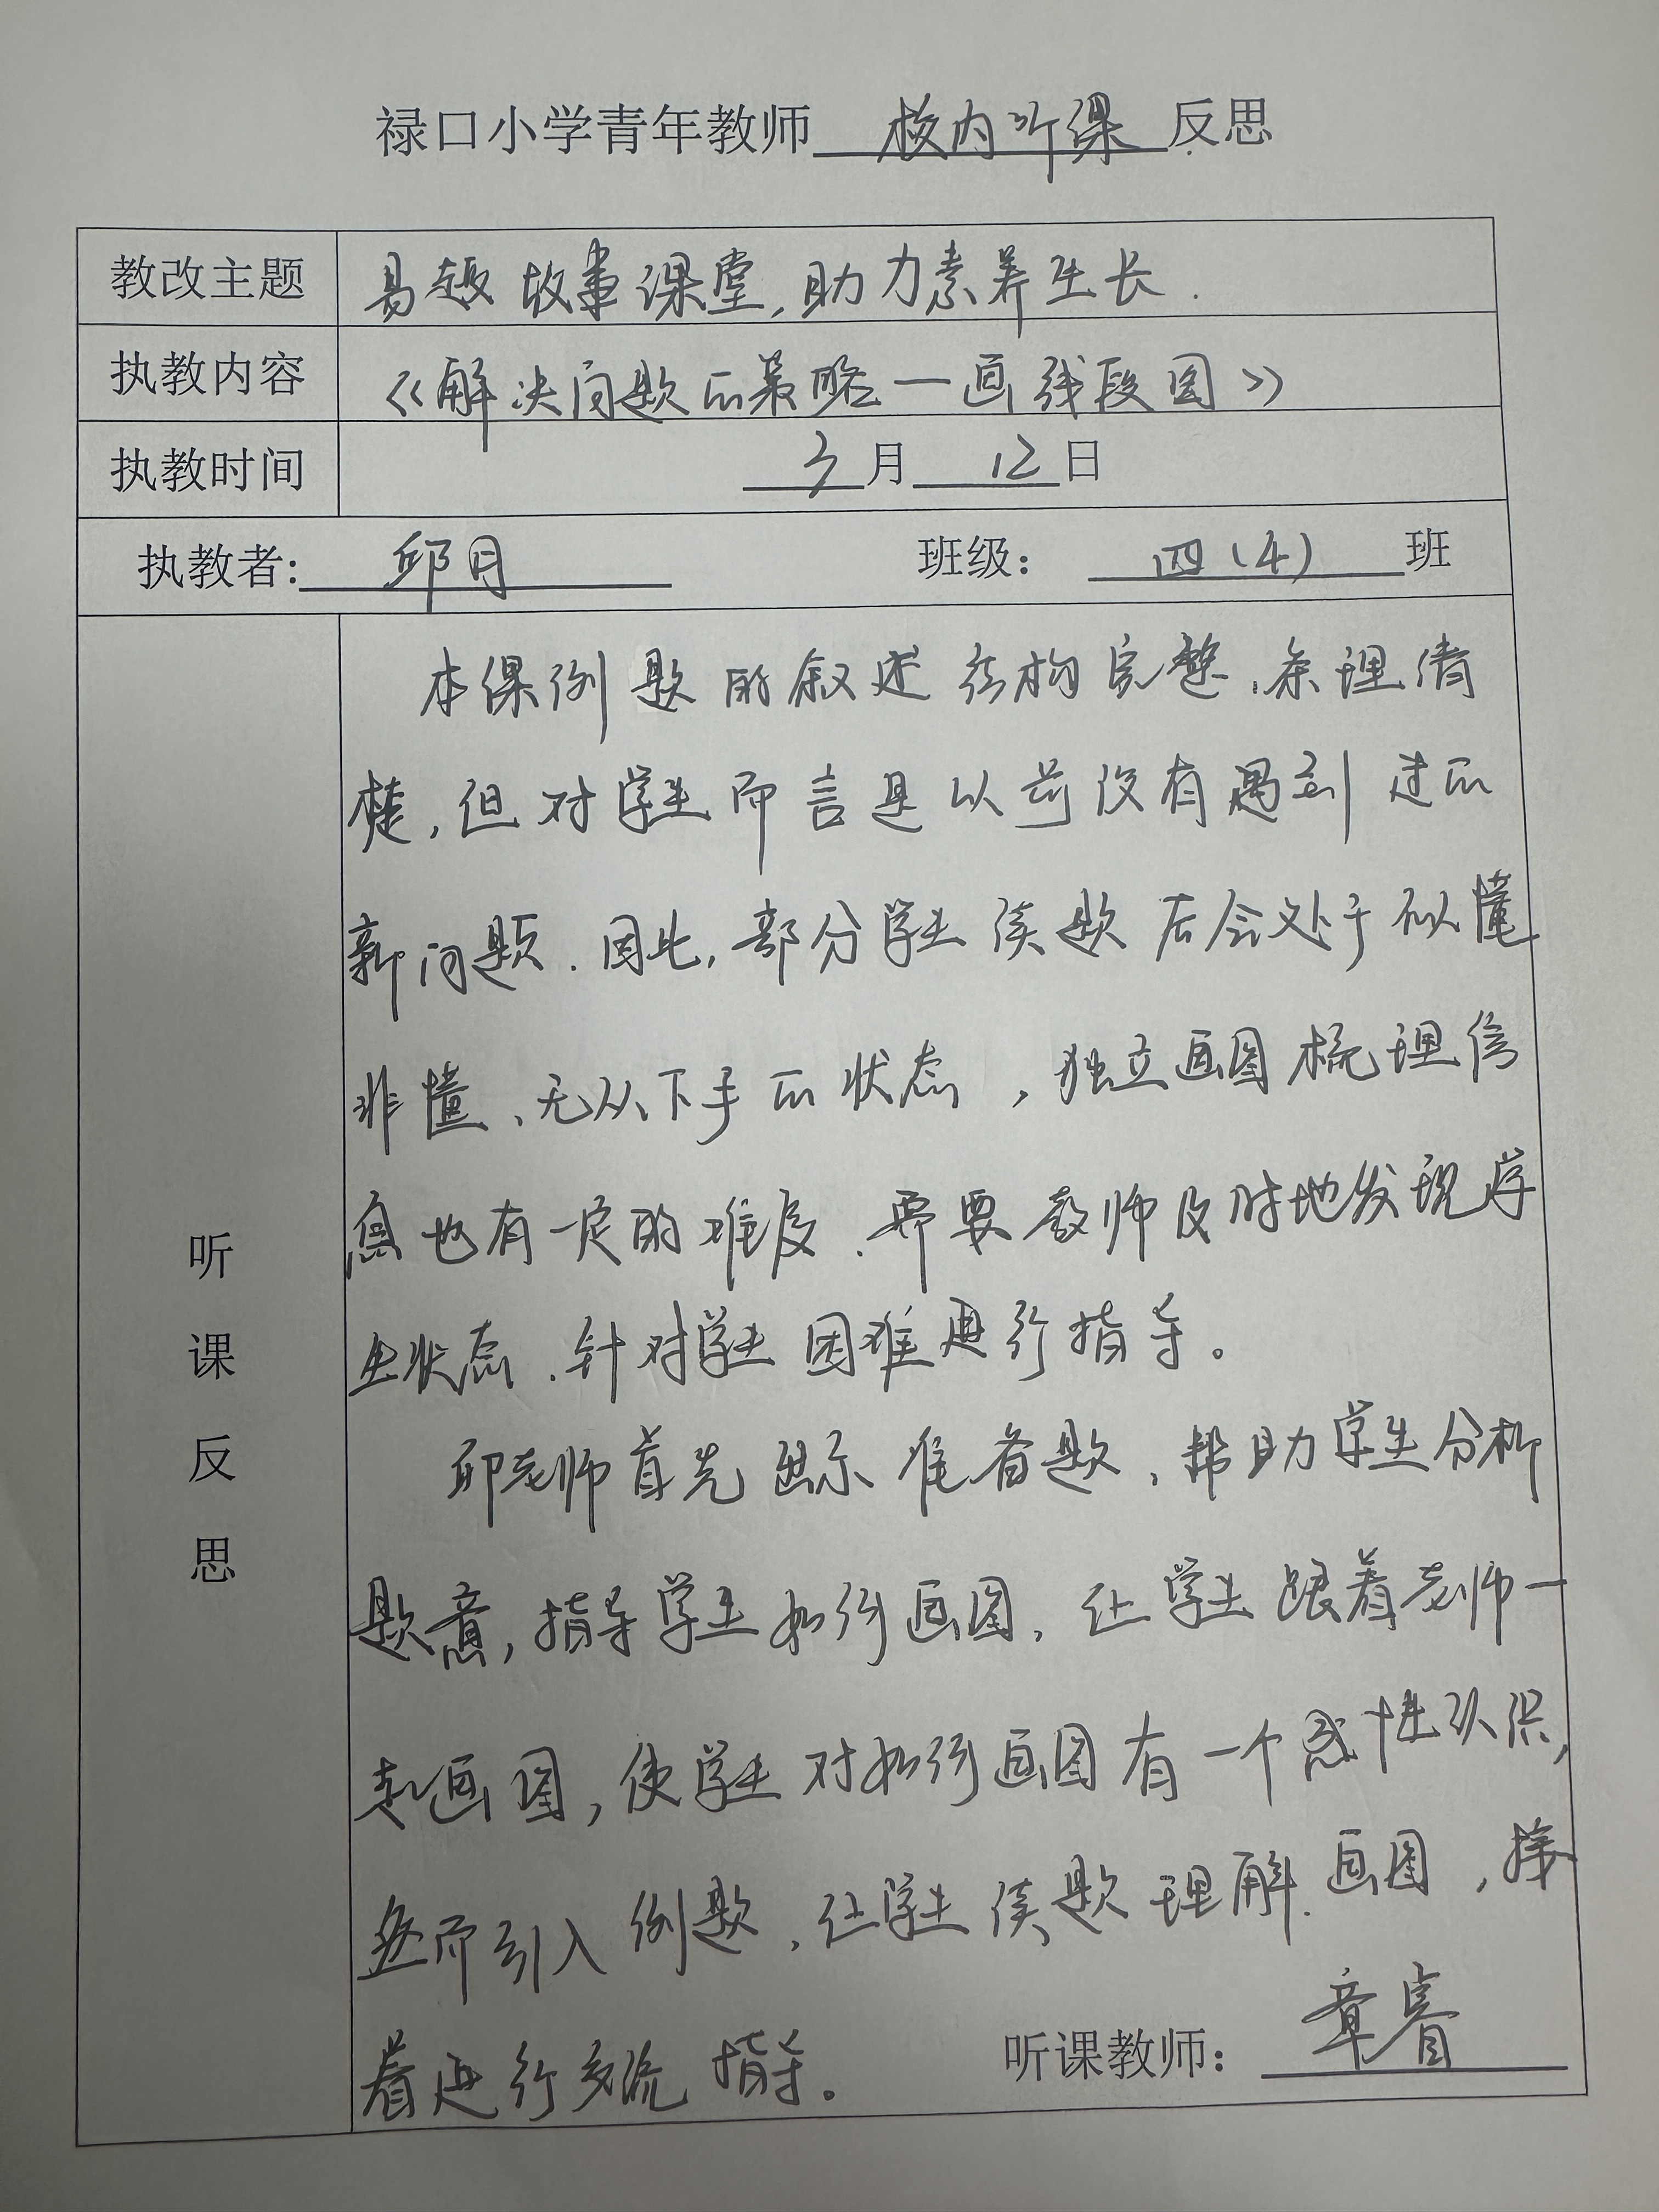 禄口小学青年教师 校内听课 反思
教改主题 易趣故事课堂,助力素养生长.
执教内容 《解决问题的策略—画线段图》
执教时间 3月12日
执教者: 邱月 班级: 四(4) 班
听课反思
本课例题的叙述结构完整、条理清
楚,但对学生而言是以前没有遇到过的
新问题.因此,部分学生读题后会处于似懂
非懂、无从下手的状态,独立画图梳理信
息也有一定的难度.需要教师及时地发现学
生状态.针对学生困难进行指导。
邱老师首先出示准备题,帮助学生分析
题意,指导学生如何画图,让学生跟着老师一
起画图,使学生对如何画图有一个感性认识,
继而引入例题,让学生读题理解.画图,接
着进行交流指导。
听课教师: 章睿